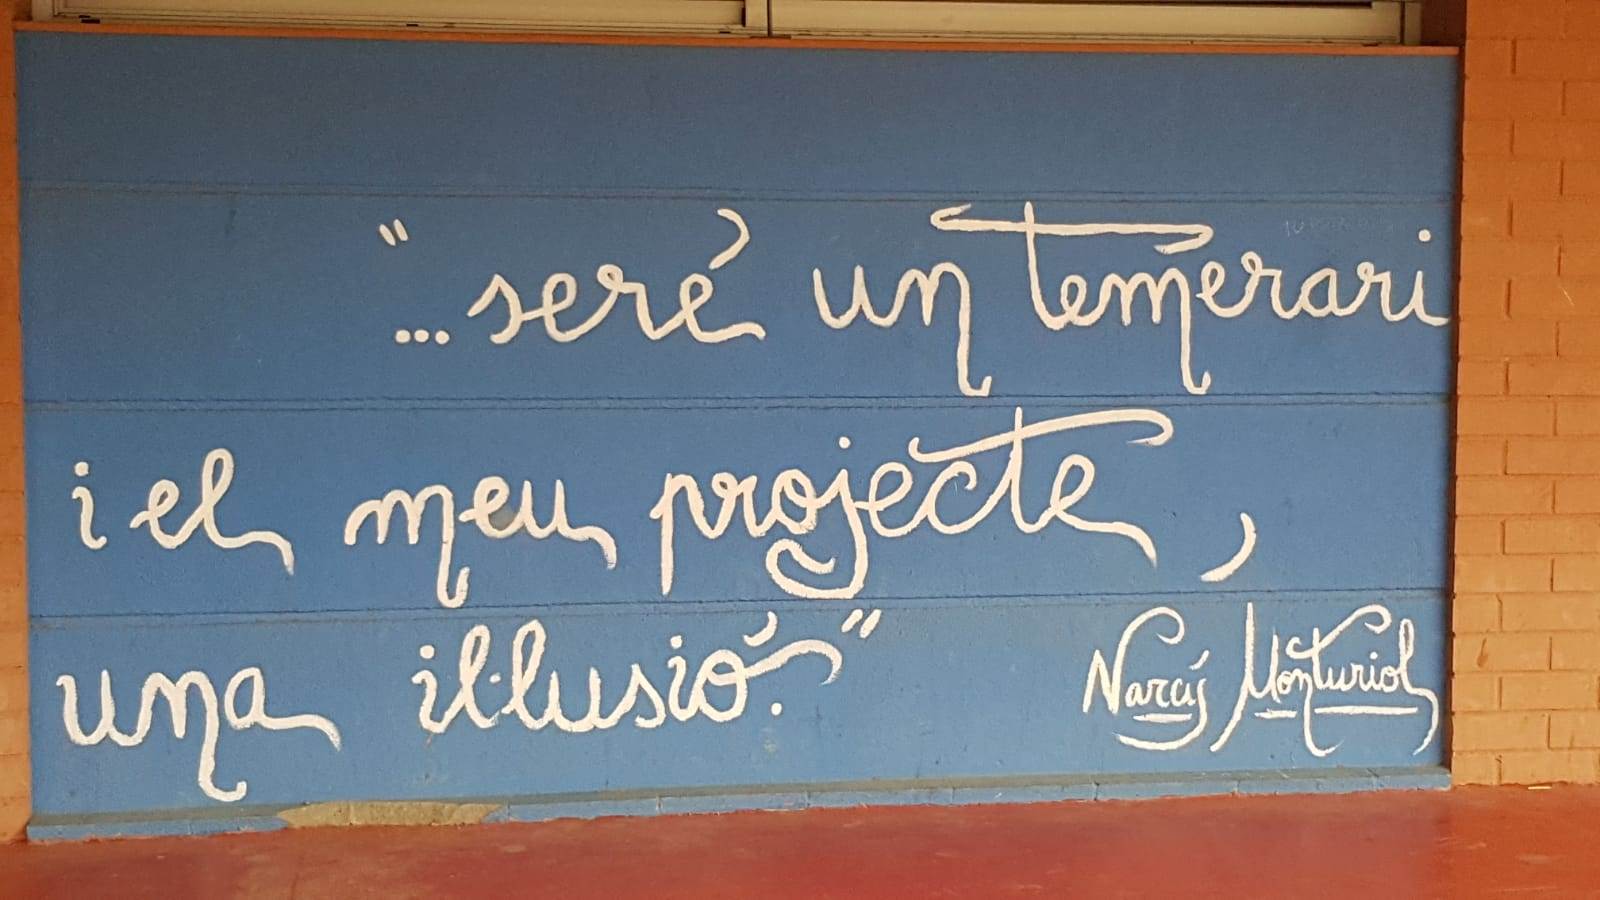 "...seré un temerari
i el meu projecte,
una il·lusió."
Narcís Monturiol